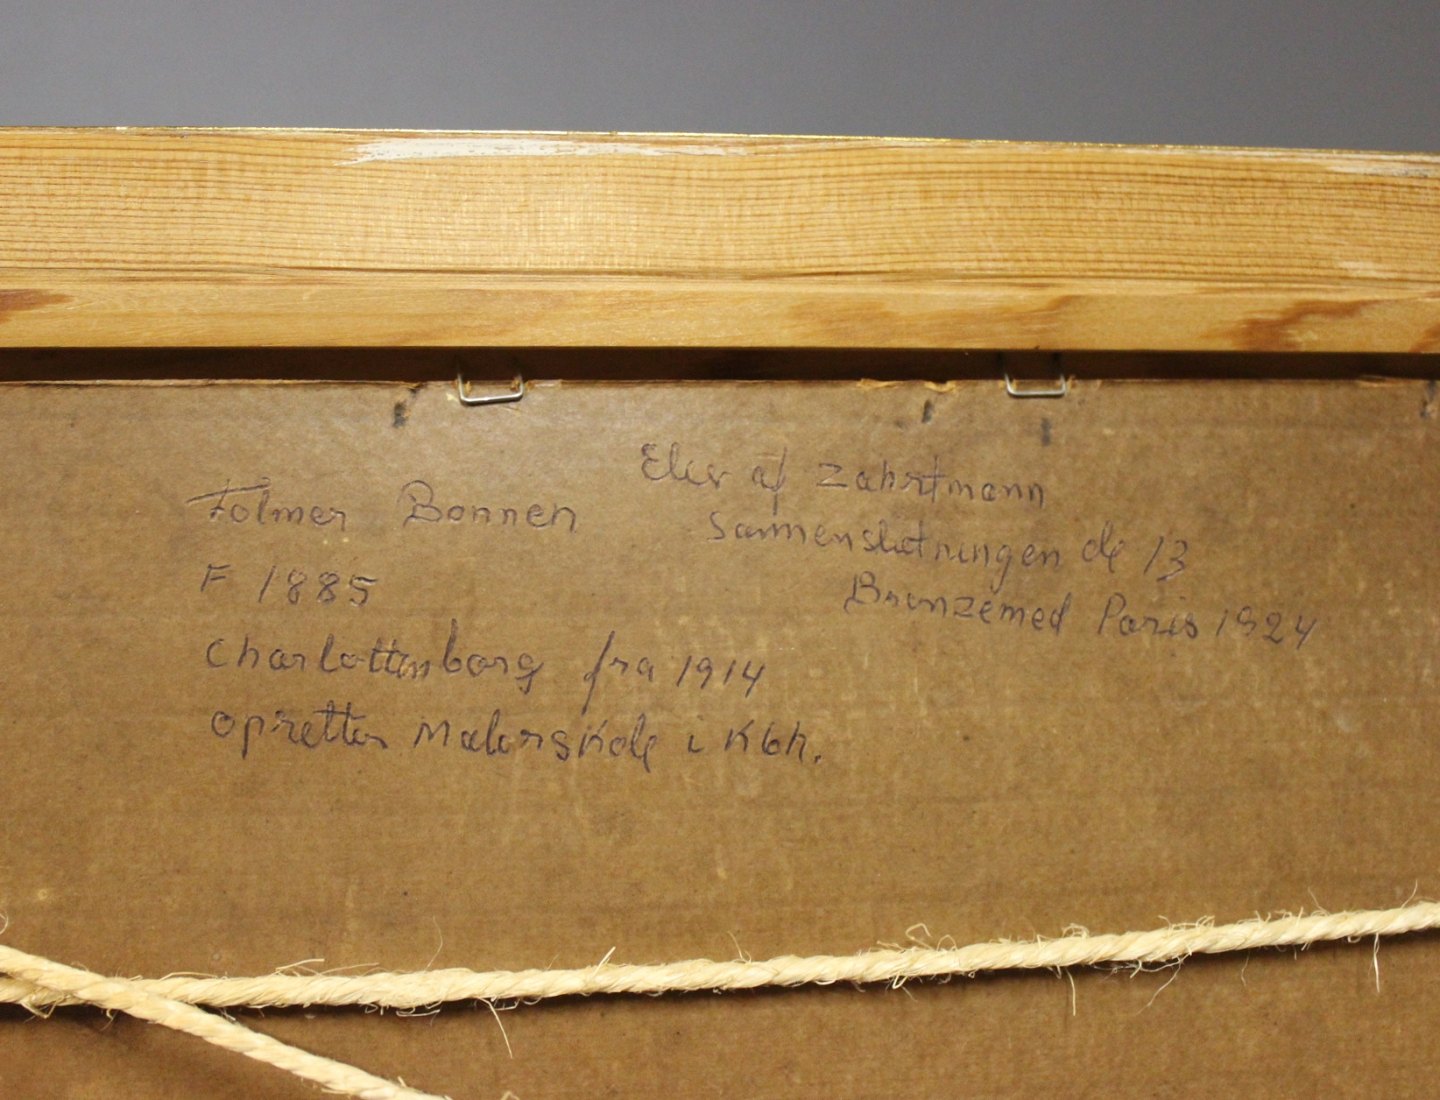 Folmer Bonnen
F 1885
Charlottenborg fra 1914
oprettes Malerskole i Kbh.
Elev af Zahrtmann
Sammenslutningen de 13
Bronzemed Paris 1924